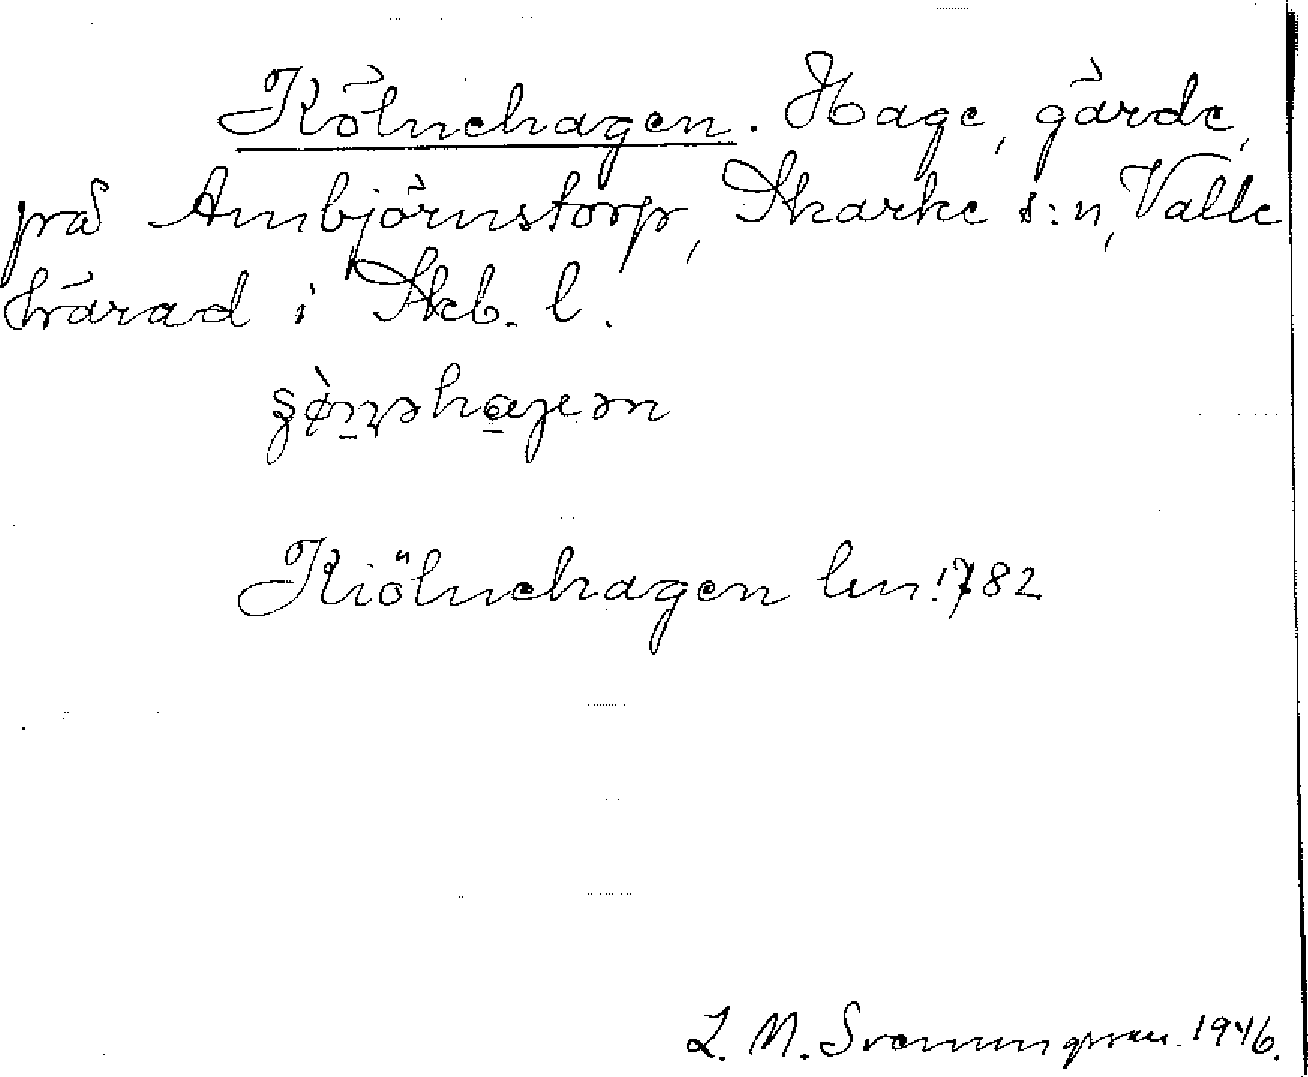 Kölnehagen. Hage, gärde,
på Ambjörnstorp, Skarke s:n, Valle
härad i Skb. l.
Kiölnehagen lm. 1782
L. M. Svenungsson 1946.